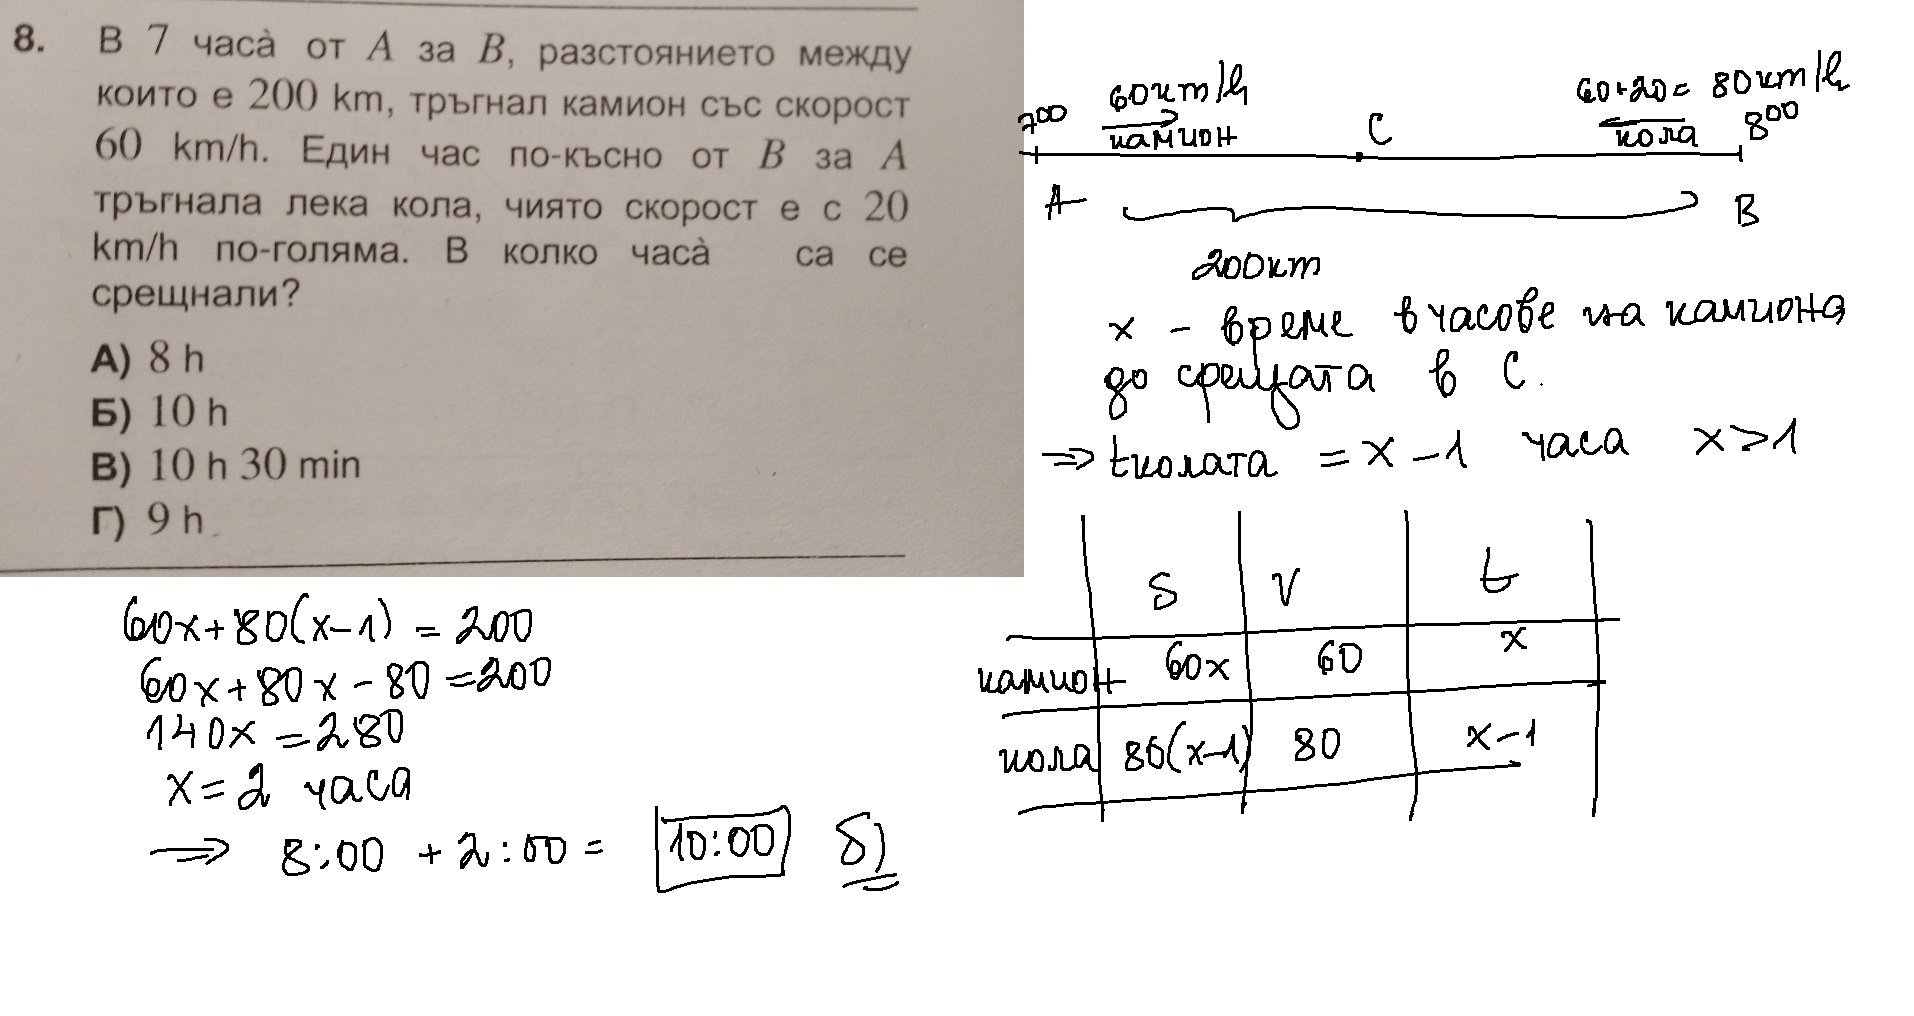 8. В 7 часà от A за B, разстоянието между
които е 200 km, тръгнал камион със скорост
60 km/h. Един час по-късно от B за A
тръгнала лека кола, чиято скорост е с 20
km/h по-голяма. В колко часà са се
срещнали?
А) 8 h
Б) 10 h
В) 10 h 30 min
Г) 9 h
60km/h 60+20= 80km/h
7⁰⁰ камион C кола 8⁰⁰
A B
200km
x - време в часове на камиона
до срещата в C.
⇒ tколата = x - 1 часа x>1
S V t
камион 60x 60 x
кола 80(x-1) 80 x-1
60x+80(x-1) = 200
60x+80x-80=200
140x=280
x=2 часа
⇒ 8:00 + 2:00 = 10:00 б)